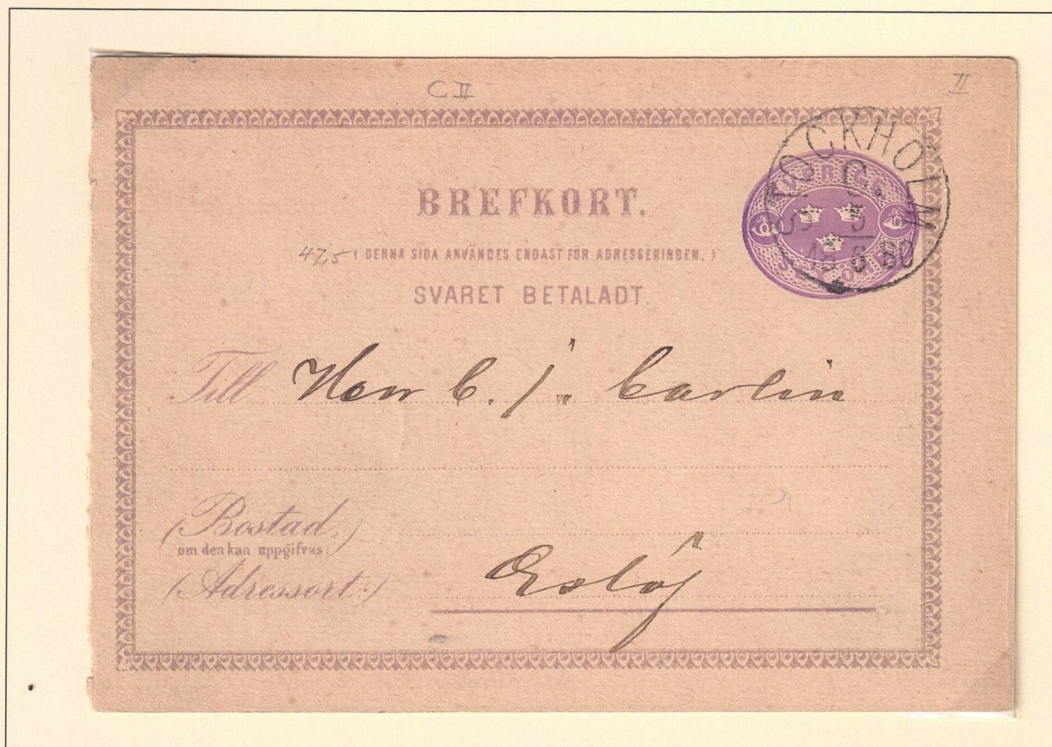 C II
II
STOCKHOLM
SVERIGE
BREFKORT.
47,5 (DENNA SIDA ANVÄNDES ENDAST FÖR ADRESSERINGEN.)
SVARET BETALADT.
Till Herr C. J. Carlin
(Bostad,)
om den kan uppgifvas:
(Adressort:) Eslöf